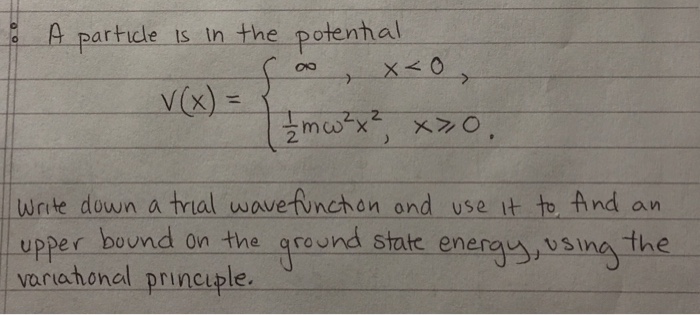 A particle is in the potential
V(x) = { ∞ , x < 0 ,
½mω²x² , x ⩾ 0 .
Write down a trial wavefunction and use it to find an
upper bound on the ground state energy, using the
variational principle.